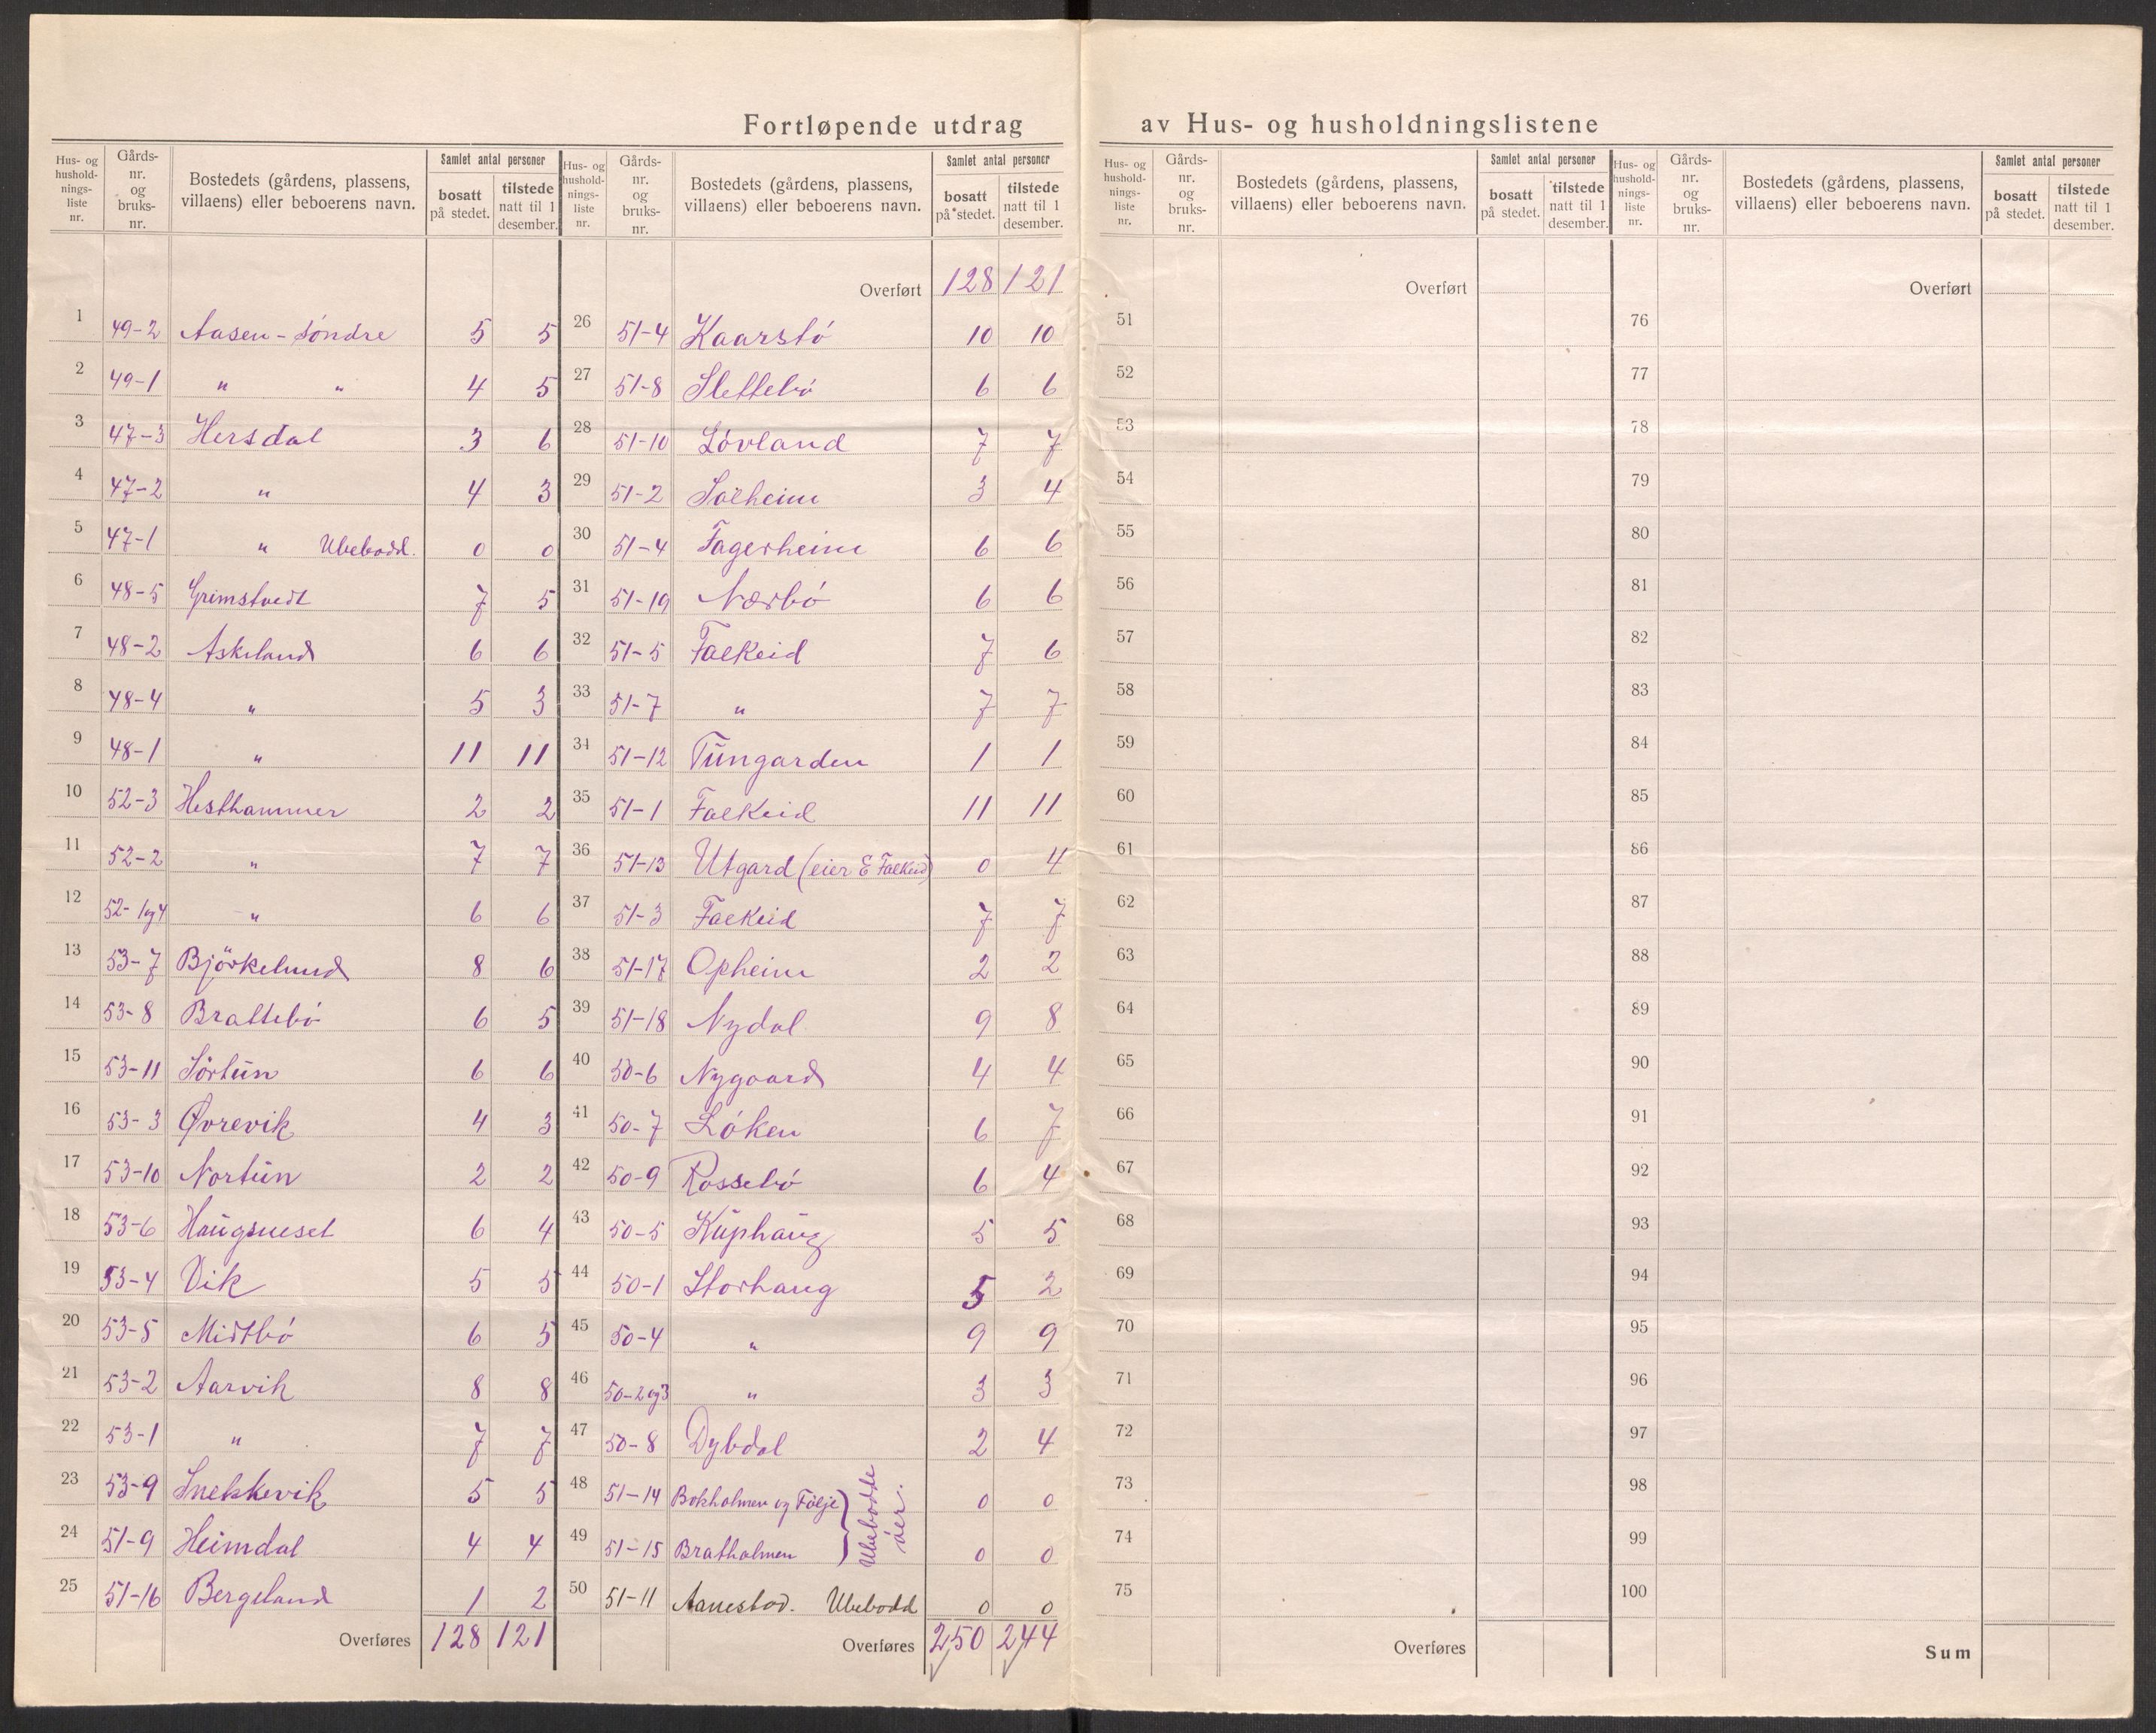 Fortløpende utdrag av Hus- og husholdningslistene
Hus- og hushold- nings- liste nr. Gårds- nr. og bruks- nr. Bostedets (gårdens, plassens, villaens) eller beboerens navn. Samlet antal personer bosatt på stedet. tilstede natt til 1 desember.
Hus- og hushold- nings- liste nr. Gårds- nr. og bruks- nr. Bostedets (gårdens, plassens, villaens) eller beboerens navn. Samlet antal personer bosatt på stedet. tilstede natt til 1 desember.
Hus- og hushold- nings- liste nr. Gårds- nr. og bruks- nr. Bostedets (gårdens, plassens, villaens) eller beboerens navn. Samlet antal personer bosatt på stedet. tilstede natt til 1 desember.
Hus- og hushold- nings- liste nr. Gårds- nr. og bruks- nr. Bostedets (gårdens, plassens, villaens) eller beboerens navn. Samlet antal personer bosatt på stedet. tilstede natt til 1 desember.
1 49-2 Aasen - söndre 5 5
2 49-1 " " 4 5
3 47-3 Hersdal 3 6
4 47-2 " 4 3
5 47-1 " Ubebodd. 0 0
6 48-5 Grimstvedt 7 5
7 48-2 Askeland 6 6
8 48-4 " 5 3
9 48-1 " 11 11
10 52-3 Hesthammer 2 2
11 52-2 " 7 7
12 52-1og4 " 6 6
13 53-7 Björkelund 8 6
14 53-8 Brattebö 6 5
15 53-11 Sörtun 6 6
16 53-3 Øvrevik 4 3
17 53-10 Nortun 2 2
18 53-6 Haugsneset 6 4
19 53-4 Vik 5 5
20 53-5 Midtbö 6 5
21 53-2 Aarvik 8 8
22 53-1 " 7 7
23 53-9 Snekkevik 5 5
24 51-9 Heimdal 4 4
25 51-16 Bergeland 1 2
Overføres 128 121
Overført 128 121
26 51-4 Kaarstö 10 10
27 51-8 Slettebö 6 6
28 51-10 Lövland 7 7
29 51-2 Solheim 3 4
30 51-4 Fagerheim 6 6
31 51-19 Nærbö 6 6
32 51-5 Falkeid 7 6
33 51-7 " 7 7
34 51-12 Tungarden 1 1
35 51-1 Falkeid 11 11
36 51-13 Utgard (eier E Falkeid) 0 4
37 51-3 Falkeid 7 7
38 51-17 Opheim 2 2
39 51-18 Nydal 9 8
40 50-6 Nygaard 4 4
41 50-7 Löken 6 7
42 50-9 Rossebö 6 4
43 50-5 Kuphaug 5 5
44 50-1 Storhaug 5 2
45 50-4 " 9 9
46 50-2og3 " 3 3
47 50-8 Dybdal 2 4
48 51-14 Bokholmen og Følje 0 0
49 51-15 Bratholmen 0 0
Ubebodde öer.
50 51-11 Aanestad. Ubebodd 0 0
Overføres 250 244
Overført
51
52
53
54
55
56
57
58
59
60
61
62
63
64
65
66
67
68
69
70
71
72
73
74
75
Overføres
Overført
76
77
78
79
80
81
82
83
84
85
86
87
88
89
90
91
92
93
94
95
96
97
98
99
100
Sum